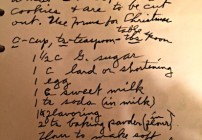 cookies, & are to be cut
out. Use forms for Christmas
c-cup, ts-teaspoon-tbs-
table
spoon
1 1/2 c G. sugar
1 c lard or shortening
1 egg
c sweet milk
ts soda (in milk)
flavoring
2 ts baking powder
flour to make soft